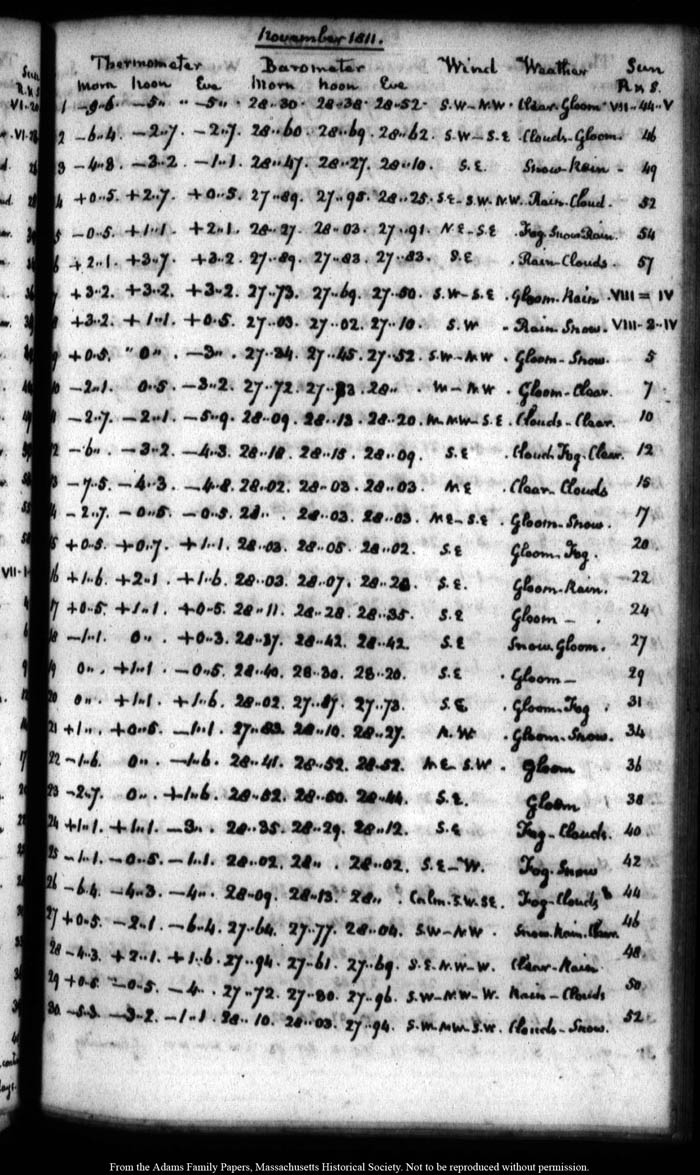 November 1811.
Thermometer Barometer Wind Weather Sun
Morn Noon Eve Morn Noon Eve R & S.
1 –9..6. –5.. " –5.. " 28..30. 28..38. 28..52. S.W–N.W. Clear. Gloom VII–44–V
2 –6..4. –2..7. –2..7. 28..60. 28..69. 28..62. S.W–S.E. Clouds–Gloom. 46
3 –4..8. –3..2. –1..1. 28..47. 28..27. 28..10. S.E. Snow–Rain – 49
4 +0..5. +2..7. +0..5. 27..89. 27..98. 28..25. S.E–S.W.N.W. Rain. Cloud. 52
5 –0..5. +1..1. +2..1. 28..27. 28..03. 27..91. N.E–S.E. Fog. Snow. Rain. 54
6 +2..1. +3..7. +3..2. 27..89. 27..83. 27..83. S.E. Rain–Clouds. 57
+3..2. +3..2. +3..2. 27..73. 27..69. 27..50. S.W–S.E. Gloom. Rain. VIII = IV
8 +3..2. +1..1. +0..5. 27..03. 27..02. 27..10. S.W. Rain. Snow. VIII–2–IV
9 +0..5. " 0.. –3.. 27..34. 27..45. 27..52. S.W–N.W. Gloom–Snow. 5
10 –2..1. 0..5. –3..2. 27..72. 28.. N.W. Gloom–Clear. 7
–2..7. –2..1. –5..9. 28..09. 28..13. 28..20. S.E. Clouds–Clear. 10
2 –6.. –3..2. –4..3. 28..18. 28..15. 28..09. S.E. Cloud. Fog. Clear. 12
3 –7..5. –4..3. –4..8. 28..02. 28..03. 28..03. N.E. Clear. Clouds 15
4 –2..7. –0..5. –0..5. 28.. 28..03. 28..03. N.E–S.E. Gloom–Snow. 17
5 +0..5. +0..7. +1..1. 28..03. 28..05. 28..02. S.E. Gloom. Fog. 20
16 +1..6. +2..1. +1..6. 28..03. 28..07. 28..28. S.E. Gloom. Rain. 22
17 +0..5. +1..1. +0..5. 28..11. 28..28. 28..35. S.E. Gloom – 24
18 –1..1. 0.. +0..3. 28..37. 28..42. 28..42. S.E. Snow. Gloom. 27
9 0.. +1..1 –0..5. 28..40. 28..30. 28..20. S.E. Gloom – 29
20 0.. +1..1 +1..6. 28..02. 27..87. 27..73. S.E. Gloom. Fog 31
21 +1.. +0..5. –1..1. 27..83. 28..10. 28..27. N.W. Gloom. Snow. 34
22 –1..6. 0.. –1..6. 28..41. 28..52. 28..52. N.E. S.W. Gloom 36
23 –2..7. 0.. +1..6. 28..52. 28..50. 28..44. S.E. Gloom 38
24 +1..1. +1..1. –3.. 28..35. 28..29. 28..12. S.E. Fog–Clouds. 40
25 –1..1. –0..5. –1..1. 28..02. 28.. 28..02. S.E–W. Fog. Snow 42
26 –6..4. –4..3. –4.. 28..09. 28..13. 28.. Calm. S.W. SE. Fog–Clouds 44
27 +0..5. –2..1. –6..4. 27..64. 27..77. 28..04. S.W–N.W. Snow. Rain. Clear. 46
28 –4..3. +2..1. +1..6. 27..94. 27..61. 27..69. S.E. N.W–W. Clear–Rain. 48.
29 +0..5. –0..5. –4.. 27..72. 27..80. 27..96. S.W–N.W–W. Rain–Clouds 50.
30 –5..3. –3..2. –1..1. 28..10. 28..03. 27..94. S.W. N.W. S.W. Clouds–Snow. 52
From the Adams Family Papers, Massachusetts Historical Society. Not to be reproduced without permission.